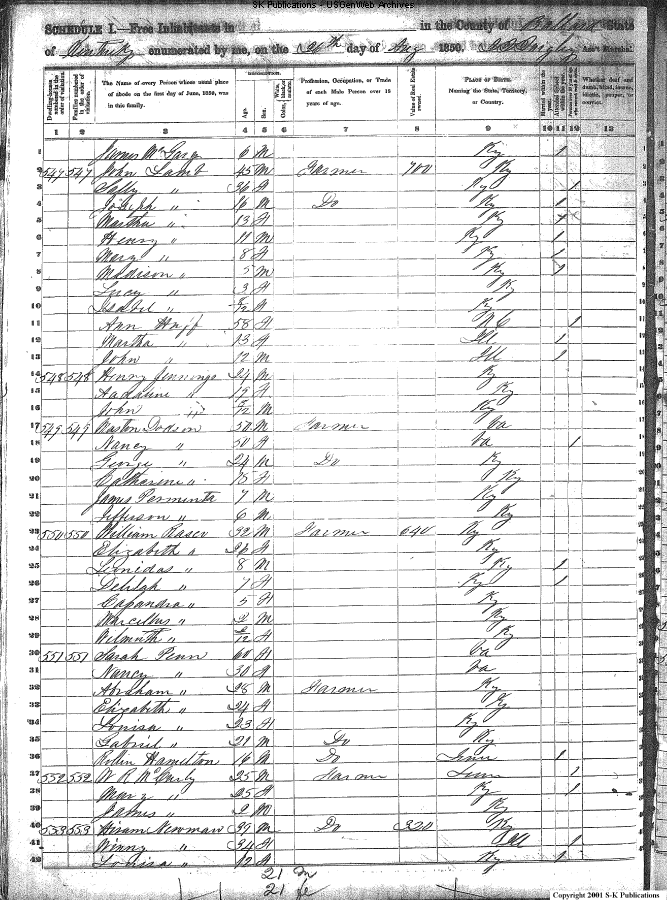 S-K Publications - USGenWeb Archives
SCHEDULE I.—Free Inhabitants in in the County of Ballard State
of Kentucky enumerated by me, on the 26th day of Aug 1850. Ass't Marshal.
Dwelling-houses numbered in the order of visitation.
Families numbered in the order of visitation.
The Name of every Person whose usual place of abode on the first day of June, 1850, was in this family.
DESCRIPTION.
Age.
Sex.
White, black, or mulatto.
Color,
Profession, Occupation, or Trade of each Male Person over 15 years of age.
Value of Real Estate owned.
PLACE OF BIRTH. Naming the State, Territory, or Country.
Married within the year.
Attended School within the year.
Whether deaf and dumb, blind, insane, idiotic, pauper, or convict.
1 2 3 4 5 6 7 8 9 10 11 12 13
1 James McGary 6 M Ky 1
2 547 547 John Lamb 45 M Farmer 700 Ky
3 Sally " 36 F Ky 1
4 Joseph " 16 M Do Ky 1
5 Martha " 13 F Ky 1
6 Henry " 11 M Ky 1
7 Mary " 8 F Ky 1
8 Madison " 5 M Ky 1
9 Lucy " 3 F Ky
10 Isabel " /12 F Ky
11 Ann Huff 58 F NC 1
12 Martha " 13 F Ill 1
13 John " 12 M Ill 1
14 548 548 Henry Jennings 24 M Ky
15 " 19 F Ky
16 John " /12 M Ky
17 549 549 Dodson 50 M Farmer Va
18 Nancy " 50 F Va 1
19 George " 24 M Do Ky
20 Catharine " 18 F Ky
21 James Parmenta 7 M Ky
22 Jefferson " 6 M Ky
23 550 550 William Rasco 32 M Farmer 640 Ky
24 Elizabeth " 26 F Ky
25 Leonidas " 8 M Ky 1
26 Delilah " 7 F Ky 1
27 " 5 F Ky
28 Marcellus " 2 M Ky
29 Wilmuth " /12 F Ky
30 551 551 Sarah Penn 60 F Va
31 Nancy " 30 F Va
32 Abraham " 28 M Farmer Ky
33 Elizabeth " 24 F Ky
34 Louisa " 23 F Ky
35 Gabriel " 21 M Do Ky
36 Hamilton 16 M Do Tenn 1
37 552 552 W R McCurly 25 M Farmer Tenn 1
38 Mary " 25 F Ky 1
39 James " 2 M Ky
40 553 553 Hiram Newman 39 M Do 320 Ky
41 Winny " 34 F Ill 1
42 Louisa " 12 F Ky 1
21 m
21 fe
Copyright 2001 S-K Publications